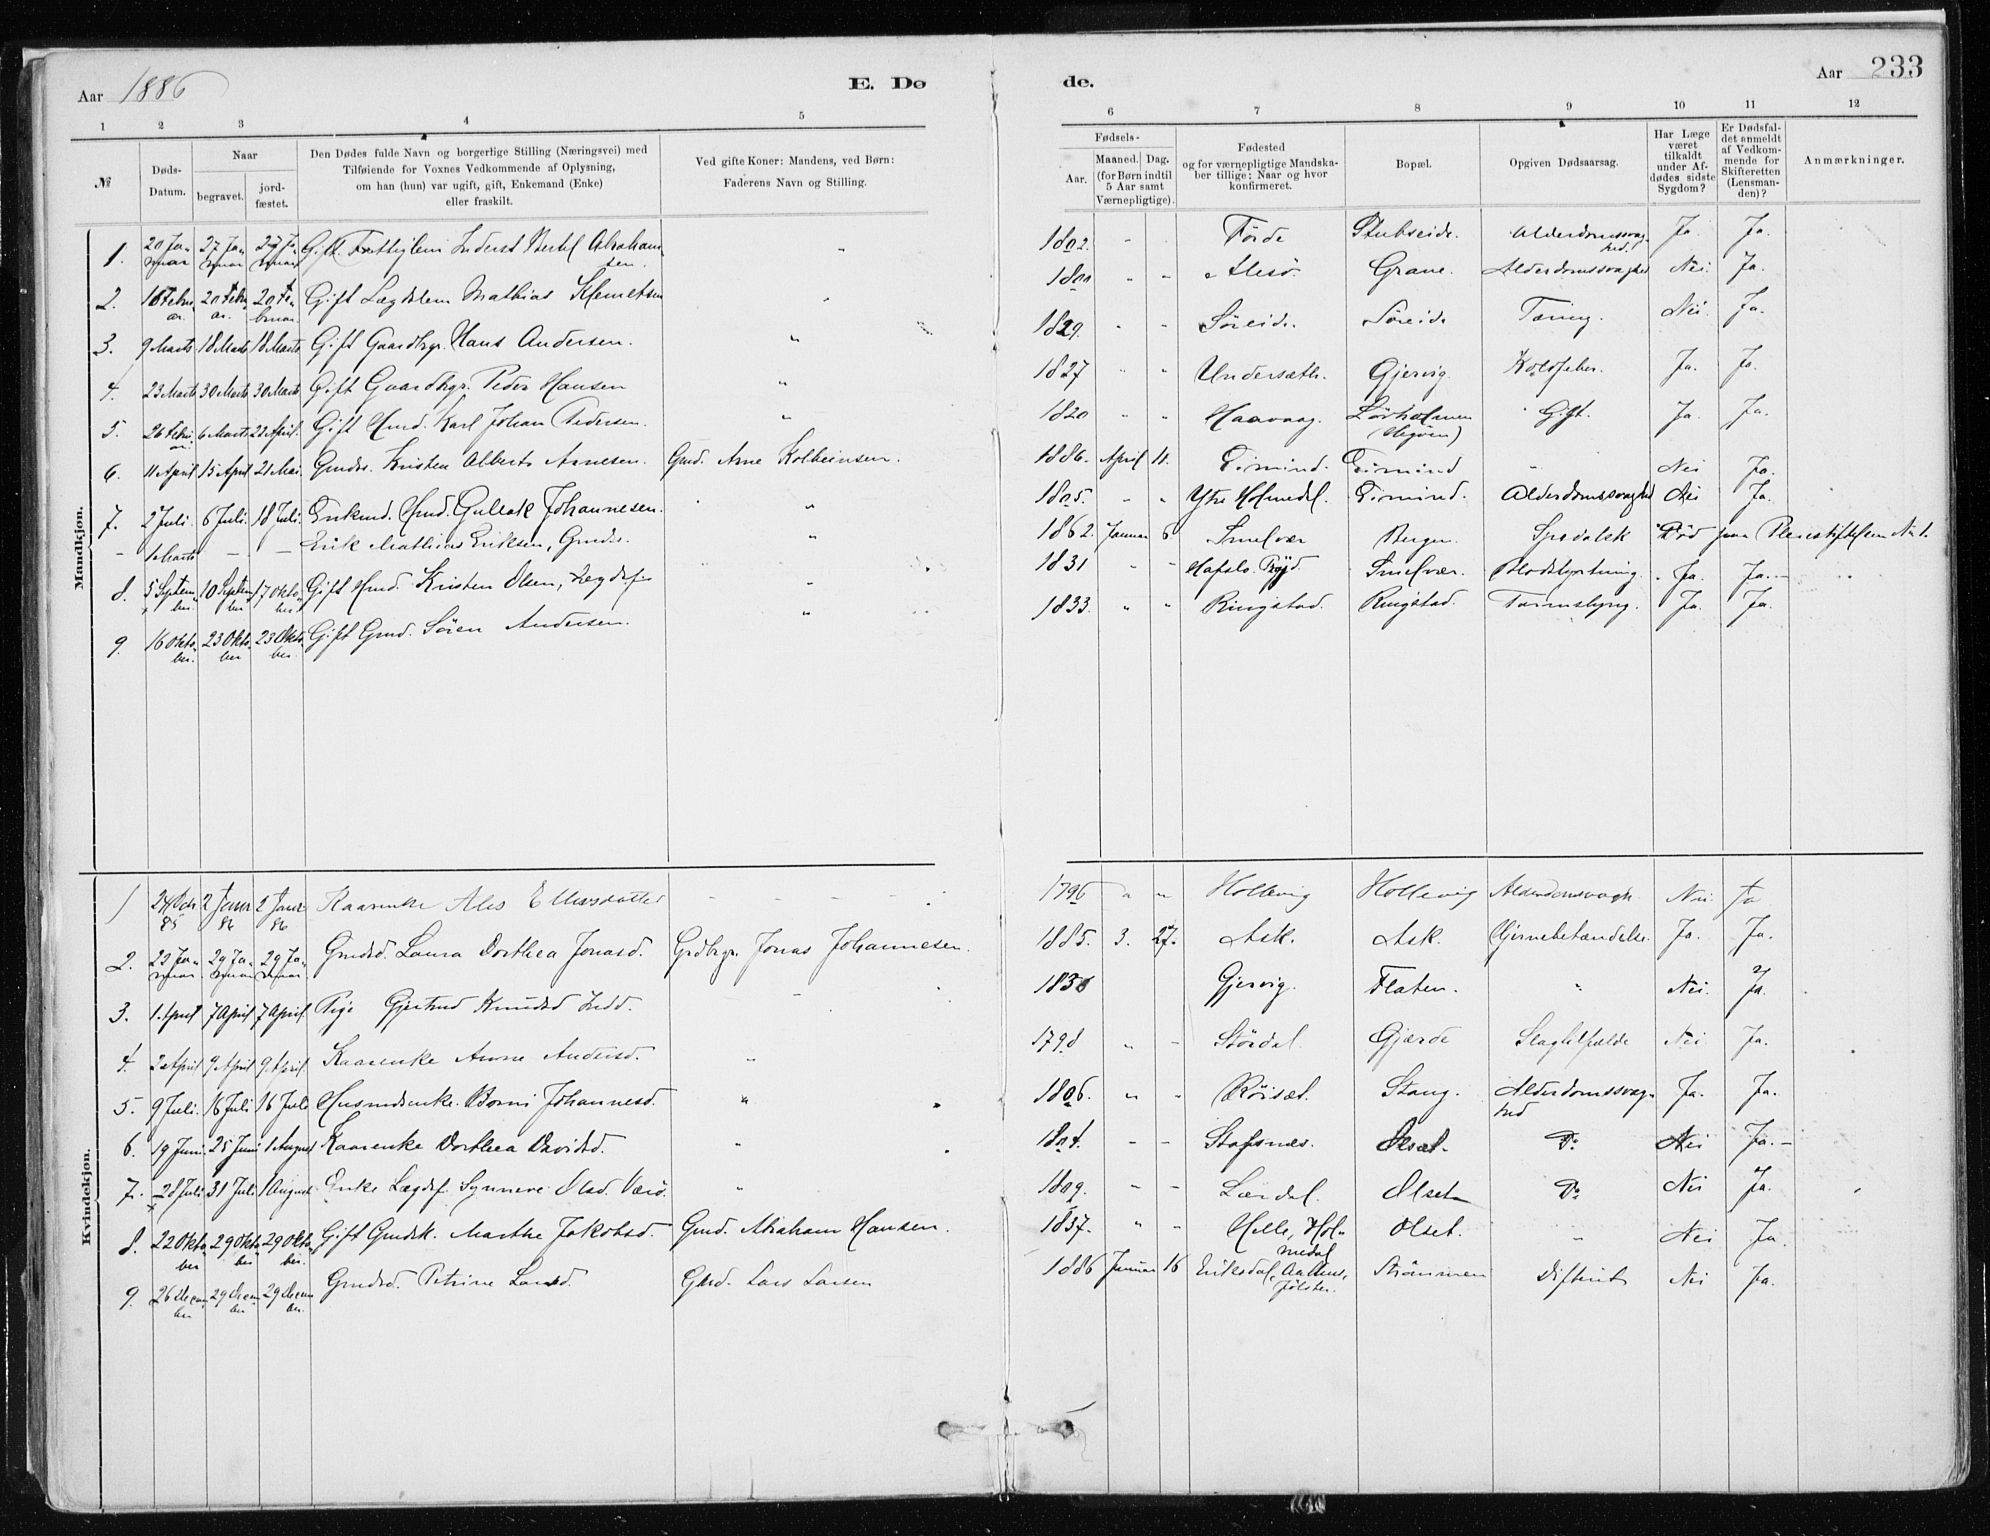 Aar 1886
E. Dø
de.
Aar
233
1 2 3 4 5 6 7 8 9 10 11 12
№
Døds-
Datum.
Naar
begravet.
jord-
fæstet.
Den Dødes fulde Navn og borgerlige Stilling (Næringsvei) med
Tilføiende for Voxnes Vedkommende af Oplysning,
om han (hun) var ugift, gift, Enkemand (Enke)
eller fraskilt.
Ved gifte Koner: Mandens, ved Børn:
Faderens Navn og Stilling.
Fødsels-
Aar.
Maaned. Dag.
(for Børn indtil
5 Aar samt
Værnepligtige).
Fødested
og for værnepligtige Mandska-
ber tillige: Naar og hvor
konfirmeret.
Bopæl.
Opgiven Dødsaarsag.
Har Læge
været
tilkaldt
under Af-
dødes sidste
Sygdom?
Er Dødsfal-
det anmeldt
af Vedkom-
mende for
Skifteretten
(Lensman-
den)?
Anmærkninger.
Mandkjøn.
1. 20 Januar 27 Januar 27 Januar Gift Inderst Bertel Abrahamsen " 1802. " " Førde Stubseide. Alderdomssvaghed. Ja. Ja.
2. 20 Februar Gift Lægdslem Mathias Klemetsen " 1800 " " Alesö. Grane. Alderdomssvaghed Nei. Ja.
3. 9 Marts 18 Marts 18 Marts Gift Gaardbgr. Hans Andersen. " 1829. " " Søreide. Søreide Tæring. Nei. Ja.
4. 23 Marts 30 Marts 30 Marts Gift Gaardbgr. Peder Hansen " 1827 " " Undersæth. Gjervig. Ja. Ja.
5. 26 Februar 6 Marts 22 April. Gift Hmd. Karl Johan Pedersen. " 1820 " " Haavaag. Gift. Ja. Ja.
6. 11 April 15 April 21 Mai. Gmdss. Kristen Alberts Arnesen. Gmd. Arne Kolbeinsen. 1886. April 11. Eimind. Eimind " Nei Ja.
7. 2 Juli. 6 Juli. 18 Juli. Enkmd. Hmd. Gullak Johannesen. " 1805. " " Ytre Holmedal. Eimind. Alderdomssvaghed Nei Ja.
– 1 Marts – – Erik Mathias Eriksen, Gmdss. " 1862. Januar 6. Smelvær Bergen. Spedalsk Død paa Pleiestiftelsen No 1.
8. 5 September 10 September 17 Oktober Gift Hmd. Kristen Olsen, " 1831 – – Hafslo. Smelvær. Blodstyrtning. Ja. Ja.
9. 16 Oktober. 23 Oktober 23 Oktober. Gift Gmd. Sören Andersen. " 1833. " " Ringstad. Ringstad. Ja. Ja.
Kvindekjøn.
1 85 2 Januar 86 2 Januar 86 Kaarenke Ales Ellersdatter – 1796 " " Hollevig Hollevig Alderdomssvagh. Nei. Ja
2. 22 Januar 29 Januar 29 Januar Gmdsd. Laura Dorthea Jonasd. Grdbrgr. Jonas Johannesen. 1885. 3. 27. Ask. Ask. Hjernebetændelse. Ja. Ja.
3. 1. April 7 April 7 April. Pige Gjertrud Knudsd Indd. – Gjervig. Flaten. " Nei. Ja.
4. 2 April 9 April 9 April. Kaarenke Anne Andersd. " 1798 " – Stördal. Gjærde Slagtilfælde Nei. Ja.
5. 9 Juli. 16 Juli 16 Juli Husmdsenke. Johannesd. " 1806. " " Röisæt. Stang. Alderdomssvaghed Ja. Ja.
6. 19 Juni. 25 Juni 1 August Kaarenke Dorthea Davidsd. " 1804. – – Stafsnæs. Olset. Do Nei Ja.
7. 28 Juli 31 Juli 1 August. Enke Lægdsf. Synneve Olsd. Værö. " 1809. – – Lærdal. Olset Do Nei Ja.
8. 22 Oktober 29 Oktober 29 Oktober. Gift Gmdsk. Marthe Jakobsd. Gmd. Abraham Hansen. 1837. " " Helle, Holmedal Olset. " Nei Ja.
9. 26 December 29 December 29 December. Gmdsd. Petrine Larsd. Gmd. Lars Larsen 1886 Januar 16 Eriksdal, Aalhus, Jölster. Strömmen Difterit Nei Ja.